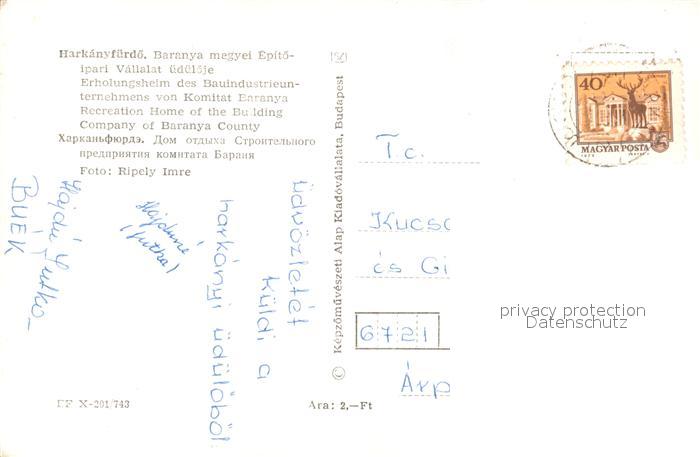 Harkányfürdő. Baranya megyei Építő-
ipari Vállalat üdülője
Erholungsheim des Bauindustrieun-
ternehmens von Komitat Baranya
Recreation Home of the Building
Company of Baranya County
Харканьфюрдэ. Дом отдыха Строительного
предприятия комитата Бараня
Foto: Ripely Imre
üdvözletét
küldi a
harkányi üdülőből
Hajduné
(Jutka)
Hajdú
BUÉK
EF X-201/743
Ara: 2,—Ft
© Képzőművészeti Alap Kiadóvállalata, Budapest
40
MAGYAR POSTA
T.c.
Kucso
és Gi
6721
Árp
privacy protection
Datenschutz